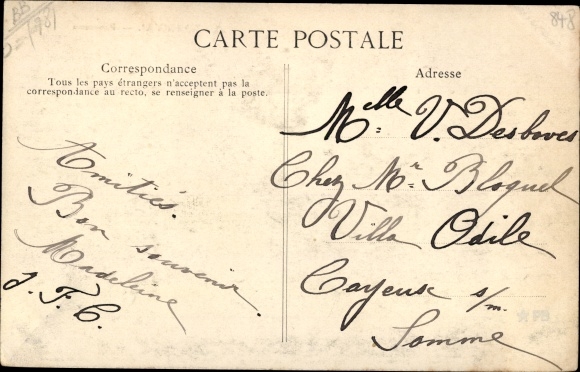 848
CARTE POSTALE
Correspondance
Tous les pays étrangers n'acceptent pas la
correspondance au recto, se renseigner à la poste.
Amitiés.
Bon souvenir.
Madeleine
J. F. C.
Adresse
Melle V. Desboves
Chez Mr Bloquel
Villa Odile
Cayeux s/m.
Somme